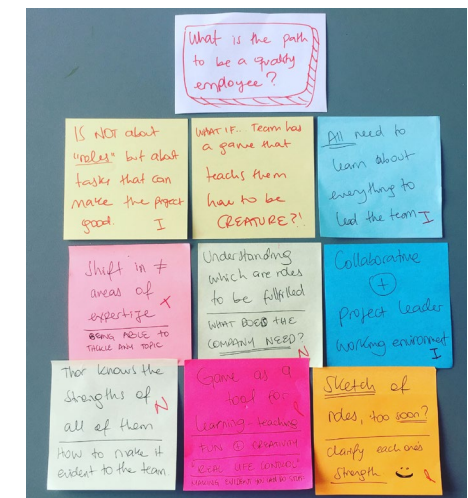 What is the path
to be a quality
employee?
IS NOT about
"roles" but about
tasks that can
make the project
good. I
WHAT IF... Team has
a game that
teachs them
how to be
CREATURE?!
All need to
learn about
everything to
lead the team I
Shift in ≠
areas of
expertize
BEING ABLE TO
TACKLE ANY TOPIC
Understanding
which are roles
to be fulfilled
WHAT DOES THE
COMPANY NEED?
N
Collaborative
+
project leader
working enviroment
I
Thor knows the
strengths of
all of them
N
How to make it
evident to the team
Game as a
tool for
learning-teaching
FUN + CREATIVITY
"REAL LIFE
MAKING EVIDENT
Sketch of
roles, too soon?
clarify each ones
strength